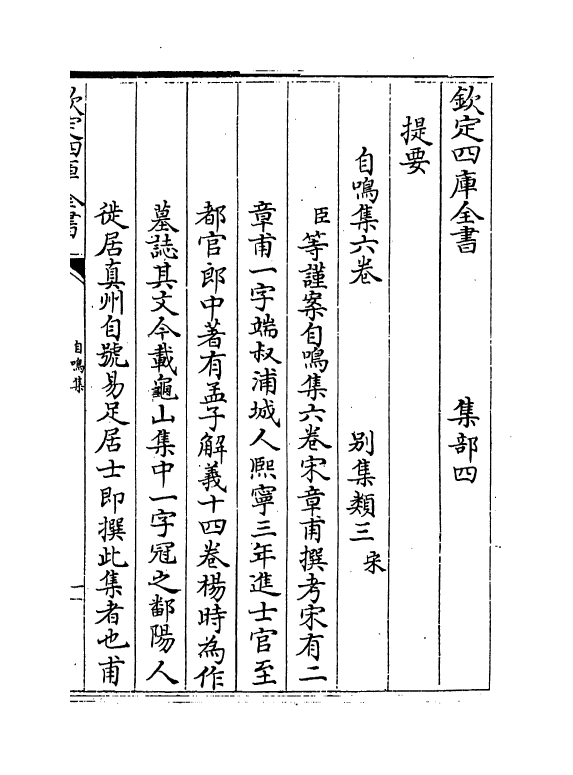 欽定四庫全書　集部四
提要
自鳴集六卷　別集類三宋
臣等謹案自鳴集六卷宋章甫撰考宋有二
章甫一字端叔浦城人熈寧三年進士官至
都官郎中著有孟子解義十四卷楊時為作
墓誌其文今載龜山集中一字冠之鄱陽人
徙居真州自號易足居士即撰此集者也甫
欽定四庫全書
自鳴集
一